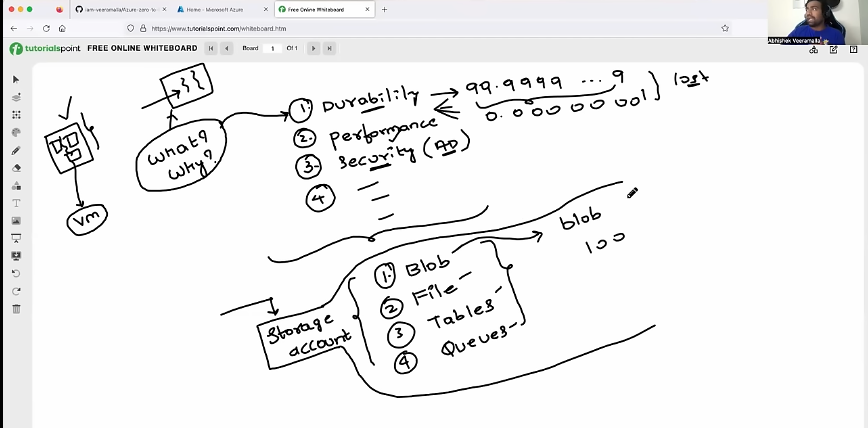 iam-veeramalla/Azure-zero-to
Home - Microsoft Azure
Free Online Whiteboard
https://www.tutorialspoint.com/whiteboard.htm
Abhishek Veeramalla
tutorialspoint FREE ONLINE WHITEBOARD Board 1 Of 1
{ }
What?
Why?
VM
1. Durability → 99.9999 ... 9
0.00000001 lost
2. Performance
3. Security (AD)
4
Storage
account
1. Blob
2 File
3 Tables
4 Queues
blob
100